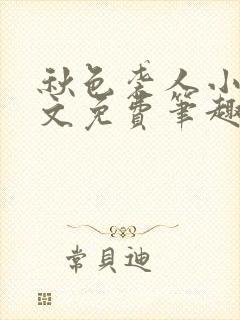 秋色老人小
文免費筆趣
常貝迪